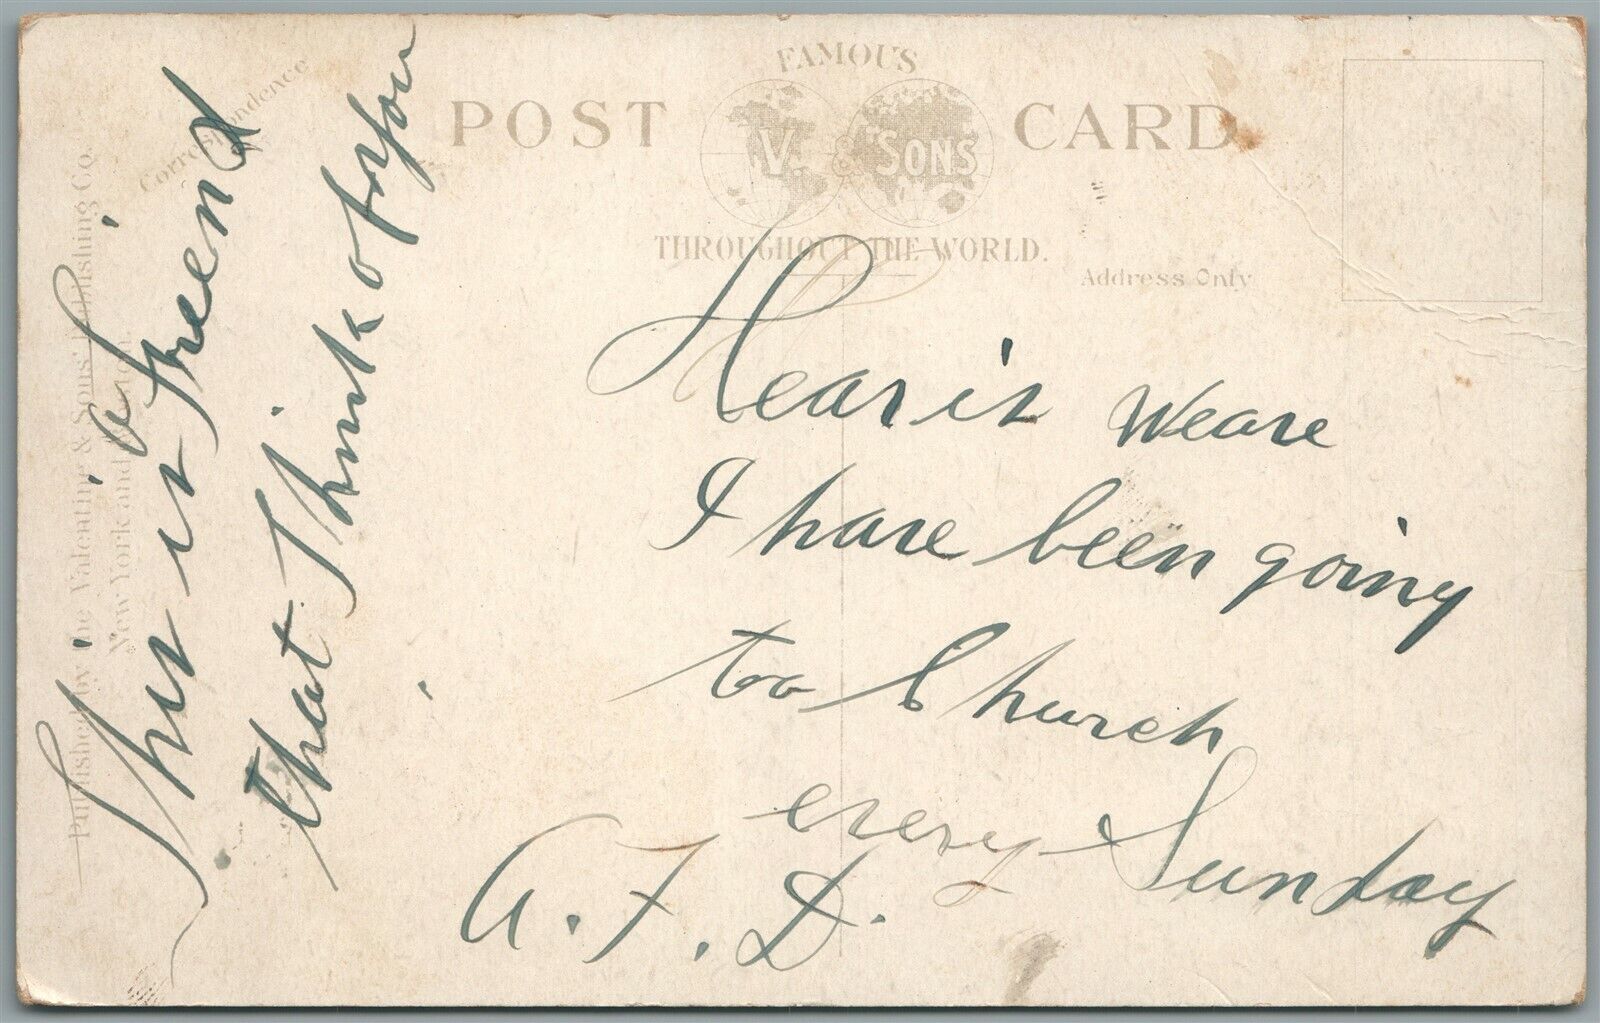 FAMOUS
POST CARD
V. & SONS
THROUGHOUT THE WORLD.
Correspondence
Address Only
Published by the Valentine & Sons' Publishing Co.
New York and
This is a Freind
that I Think of you
Hear is Weare
I have been going
to Church
every Sunday
A. F. D.